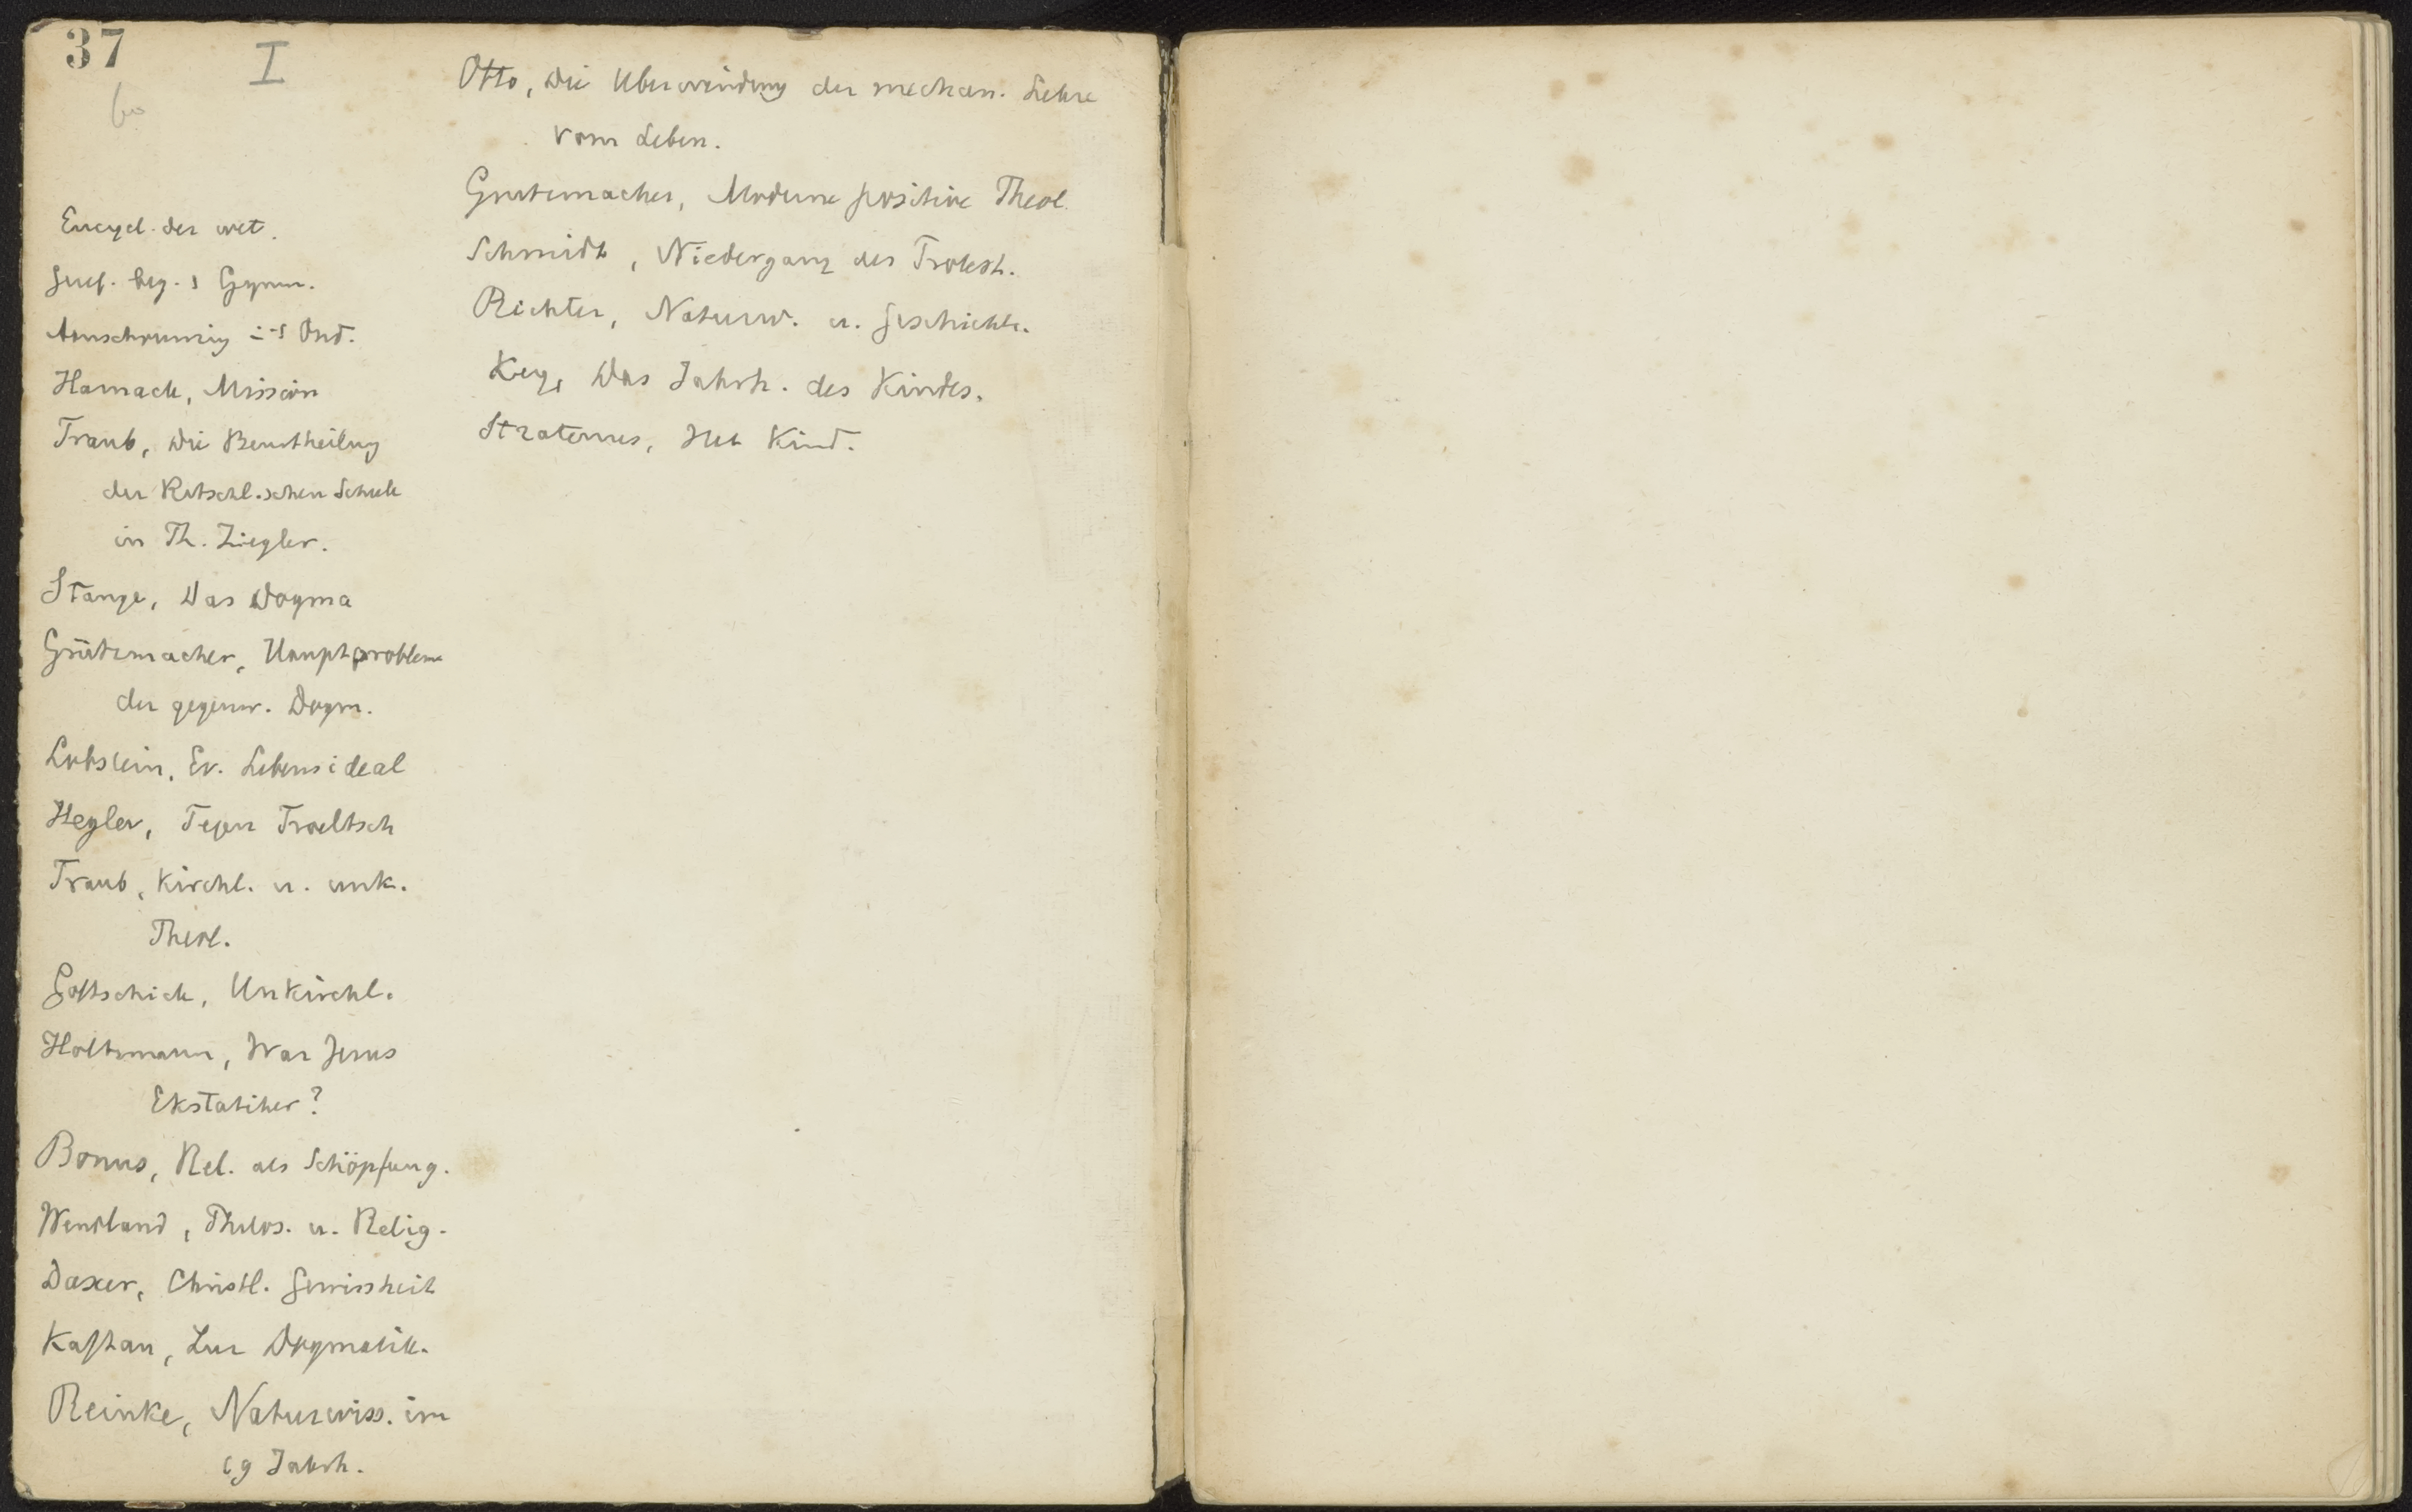 37
I
Encycl. der wet.
Geref. beg. s Gymn.
Aanschouwing i-s Ond.
Harnack, Mission
Traub, Die Beurtheilung
der Ritschl.schen Schule
in Th. Ziegler.
Stange, Das Dogma
Grützmacher, Hauptprobleme
der gegenw. Dogm.
Lobstein, Ev. Lebensideal
Hegler, Tegen Troeltsch
Traub, Kirchl. u. unk.
Theol.
Gottschick, Unkirchl.
Holtzmann, War Jesus
Ekstatiker?
Bonus, Rel. als Schöpfung.
Wendland, Philos. u. Relig.
Daxer, Christl. Gewissheit
Kaftan, Zur Dogmatik.
Reinke, Naturwiss. im
19 Jahrh.
Otto, Die Uberwindung der mechan. Lehre
vom Leben.
Grutzmacher, Moderne positive Theol.
Schmidt, Niedergang des Protest.
Richter, Naturw. u. Geschichte.
Key, Das Jahrh. des Kindes.
Stratenus, Het Kind.